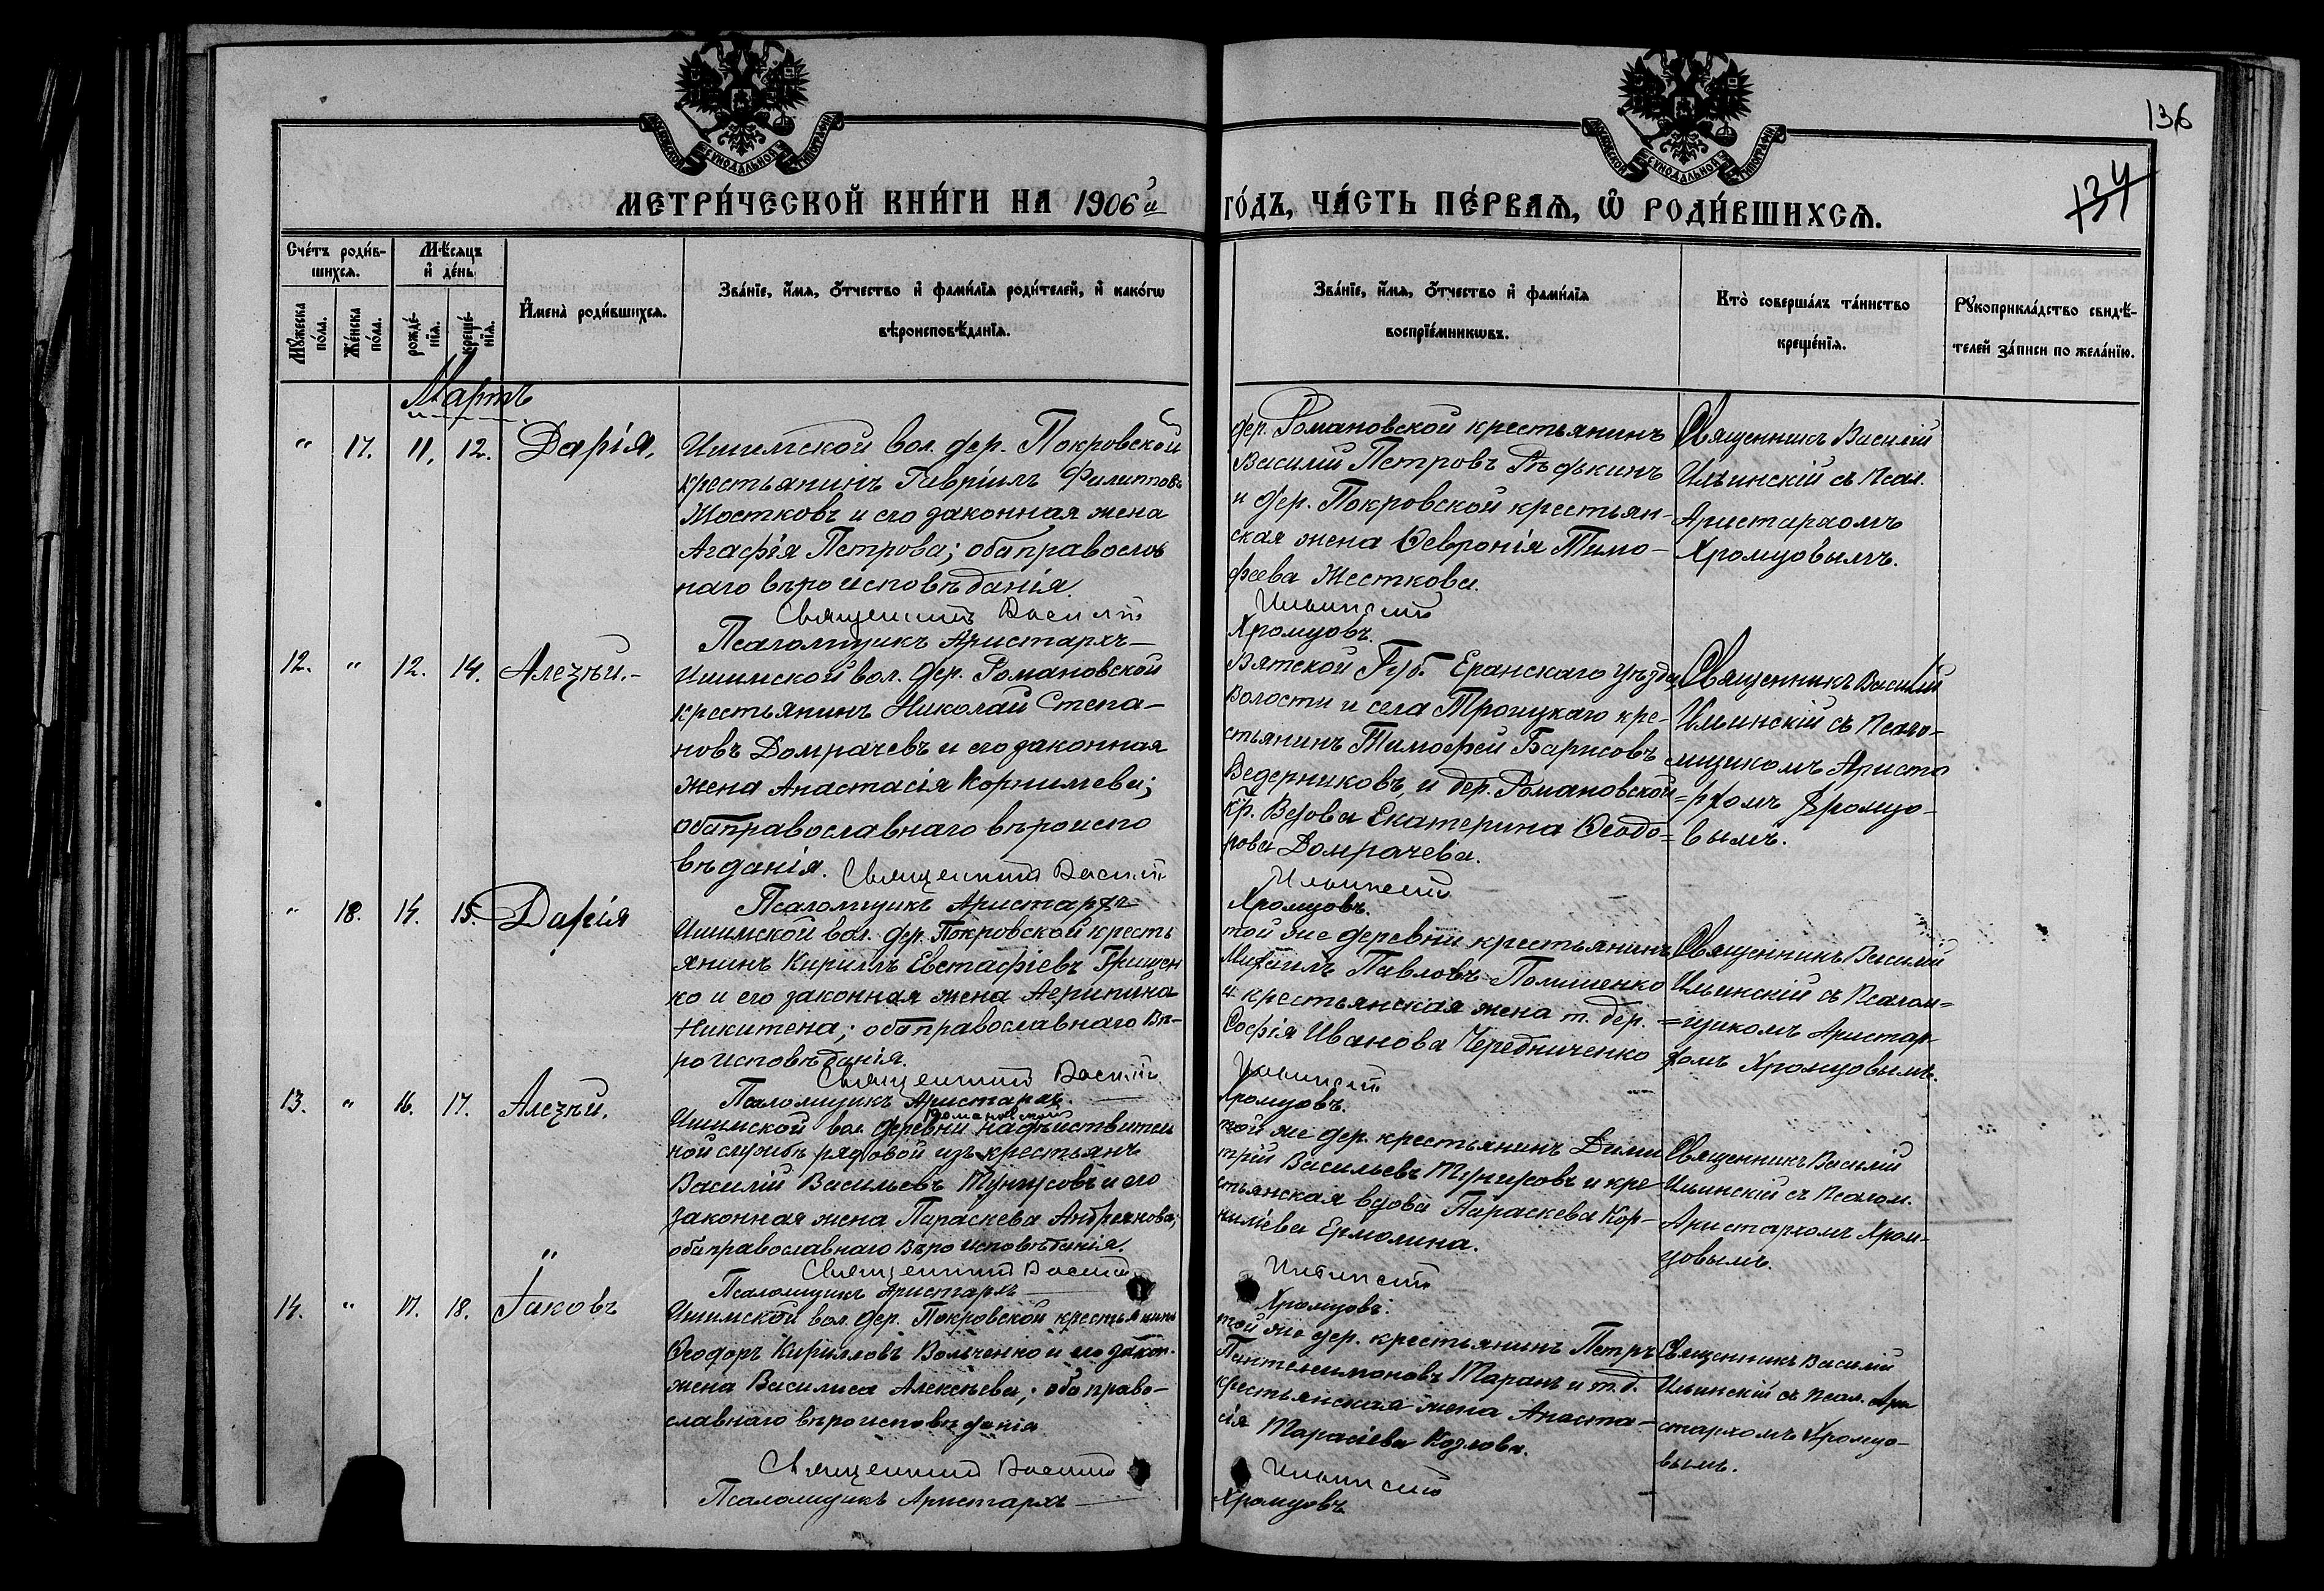 136
134
МОСКОВСКОЙ СѴНОДАЛЬНОЙ ТИПОГРАФІИ
МОСКОВСКОЙ СѴНОДАЛЬНОЙ ТИПОГРАФІИ
МЕТРИ́ЧЕСКОЙ КНИ́ГИ НА 1906й ГО́ДЪ, ЧА́СТЬ ПЕ́РВАѦ, Ѿ РОДИ́ВШИХСѦ.
Сче́тъ роди́в-
шихсѧ.
Мѣ́сѧцъ
и҆ де́нь
Мꙋ́жеска
по́ла.
Же́нска
по́ла.
рожде́-
нїѧ.
креще́-
нїѧ.
И҆мена̀ роди́вшихсѧ.
Зва́нїе, и҆́мѧ, ѻ҆́тчество и҆ фами́лїѧ роди́телей, и҆ како́гѡ
вѣроисповѣ́данїѧ.
Зва́нїе, и҆́мѧ, ѻ҆́тчество и҆ фами́лїѧ
воспрїе́мникѡвъ.
Кто̀ соверша́лъ та́инство
креще́нїѧ.
Рꙋкоприкла́дство свидѣ́-
телей за́писи по жела́нїю.
Мартъ
" 17. 11. 12. Дарія.
Ишимской вол. дер. Покровской
крестьянинъ Гавріилъ Филиппов
Жостковъ и его законная жена
Агафія Петрова; оба православ
наго вѣроисповѣданія.
Священникъ Василій
Псаломщикъ Аристархъ—
дер. Романовской крестьянинъ
Василій Петровъ
и дер. Покровской крестьян-
ская жена Ѳевронія Тимо-
феева Жесткова.
Ильинскій
Хромцовъ.
Священникъ Василій
Ильинскій съ Псал.
Аристархомъ
Хромцовымъ.
12. " 12. 14. Алезѣй.-
Ишимской вол. дер. Романовской
крестьянинъ Николай Степа-
новъ Домрачевъ и его законная
жена Анастасія Корнилева;
оба православнаго вѣроиспо
вѣданія. Священникъ Василій
Псаломщикъ Аристархъ
Вятской Губ. Еранскаго уѣзда,
волости и села Троицкаго кре-
стьянинъ Тимофей Барисовъ
Ведерниковъ и дер. Романовской
кр. Вдова Екатерина Ѳеодо-
рова Домрачева.
Ильинскій
Хромцовъ.
Священникъ Василій
Ильинскій съ Псало-
мщикомъ Ариста
=рхомъ Хромцо-
=вымъ.
" 18. 14. 15. Дарія
Ишимской вол. дер. Покровской кресть
янинъ Кириллъ Евстафіевъ Грищен
ко и его законная жена Агрипина
Никитена; оба православнаго Вѣ-
роисповѣданія.
Священникъ Василій
Псаломщикъ Аристархъ.
той же деревни крестьянинъ
Михаилъ Павловъ
и крестьянская жена т. дер.
Софія Иванова Чередниченко
Ильинскій
Хромцовъ.
Священникъ Василій
Ильинскій съ Псалом=
=щикомъ Аристар-
хомъ Хромцовымъ.
13. " 16. 17. Алезѣй.
Романовской
Ишимской вол. деревни на дѣиствител
ной службѣ рядовой изъ крестьянъ
Василій Васильевъ и его
законная жена Параскева Андреянова;
оба православнаго Вѣроисповѣданія.
Священникъ Василій
Псаломщикъ Аристархъ
той же дер. крестьянинъ Дими
трій Васильевъ и кре
стьянская вдова Параскева Кор-
нилiева Ермолина.
Ильинскій
Хромцовъ.
Священникъ Василій
Ильинскій съ Псалом.
Аристархомъ Хром-
цовымъ.
14. " 17. 18. Іаковъ
Ишимской вол. дер. Покровской крестьянинъ
Ѳеодоръ Кирилловъ Вольченко и его закон.
жена Василиса Алексѣева; оба право-
славнаго вѣроисповѣданія
Священникъ Василій
Псаломщикъ Аристархъ
той же дер. крестьянинъ Петръ
Пантелеимоновъ Таранъ и т. д.
крестьянская жена Анаста-
сія Тарасіева Козлова.
Ильинскій
Хромцовъ
Священникъ Василій
Ильинскій съ Псал. Ари
стархомъ Хромцо-
вымъ.